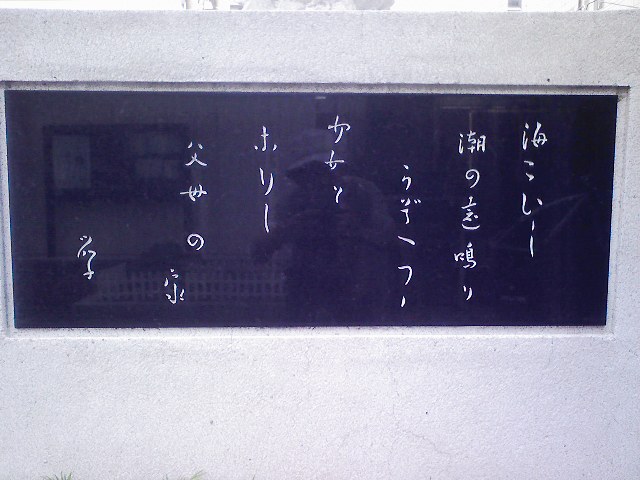 海こひし
潮の遠鳴り
かぞへつゝ
少女と
なりし
父母の家
晶子